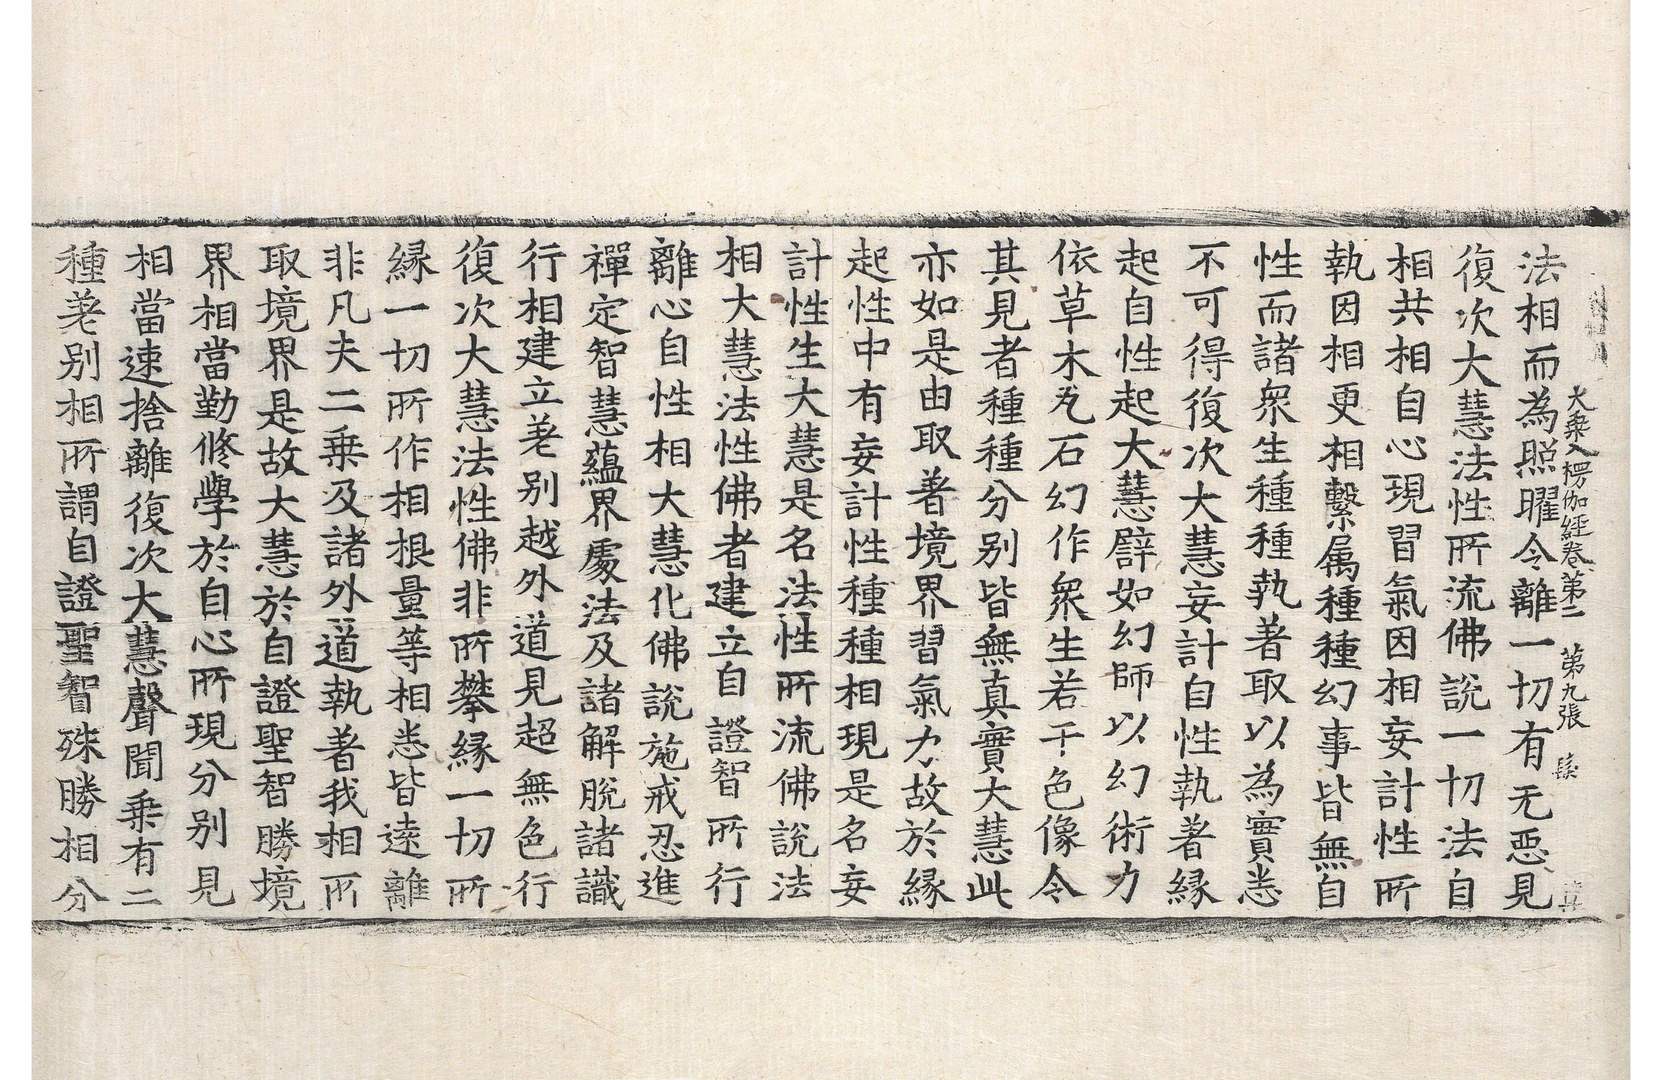 大乘入楞伽經卷第二 第九張 髮
法相而為照曜令離一切有无惡見
復次大慧法性所流佛說一切法自
相共相自心現習氣因相妄計性所
執因相更相繫属種種幻事皆無自
性而諸衆生種種執著取以為實悉
不可得復次大慧妄計自性執著緣
起自性起大慧譬如幻師以幻術力
依草木瓦石幻作衆生若干色像令
其見者種種分別皆無真實大慧此
亦如是由取著境界習氣力故於緣
起性中有妄計性種種相現是名妄
計性生大慧是名法性所流佛說法
相大慧法性佛者建立自證智所行
離心自性相大慧化佛說施戒忍進
禪定智慧蘊界處法及諸解脫諸識
行相建立差別越外道見超無色行
復次大慧法性佛非所攀緣一切所
緣一切所作相根量等相悉皆遠離
非凡夫二乘及諸外道執著我相所
取境界是故大慧於自證聖智勝境
界相當勤修學於自心所現分別見
相當速捨離復次大慧聲聞乘有二
種差別相所謂自證聖智殊勝相分